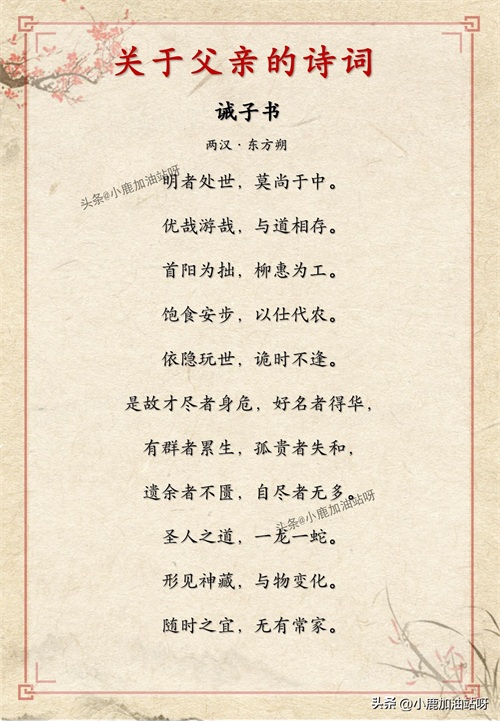 关于父亲的诗词
诫子书
两汉·东方朔
明者处世，莫尚于中。
头条@小鹿加油站呀
优哉游哉，与道相存。
首阳为拙，柳惠为工。
饱食安步，以仕代农。
依隐玩世，诡时不逢。
是故才尽者身危，好名者得华，
有群者累生，孤贵者失和，
遗余者不匮，自尽者无多。
头条@小鹿加油站呀
圣人之道，一龙一蛇。
形见神藏，与物变化。
随时之宜，无有常家。
头条 @小鹿加油站呀